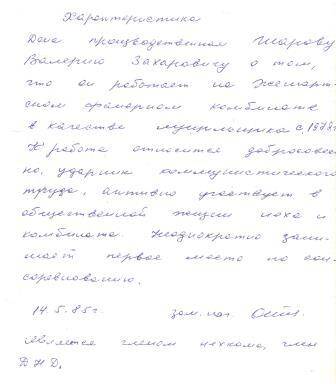 Характеристика
Дана производственная Шарову
Валерию Захаровичу о том,
что он работает на Жешарт-
ском фанерном комбинате
в качестве шурильщика с 1978г
К работе относится добросовест-
но, ударник коммунистического
труда. активно участвует в
общественной жизни цеха и
комбината. Неоднократно зани-
мает первое место по соц.
соревнованию.
14.5.85г. зам.нач.
является членом цехкома, член
ДНД.